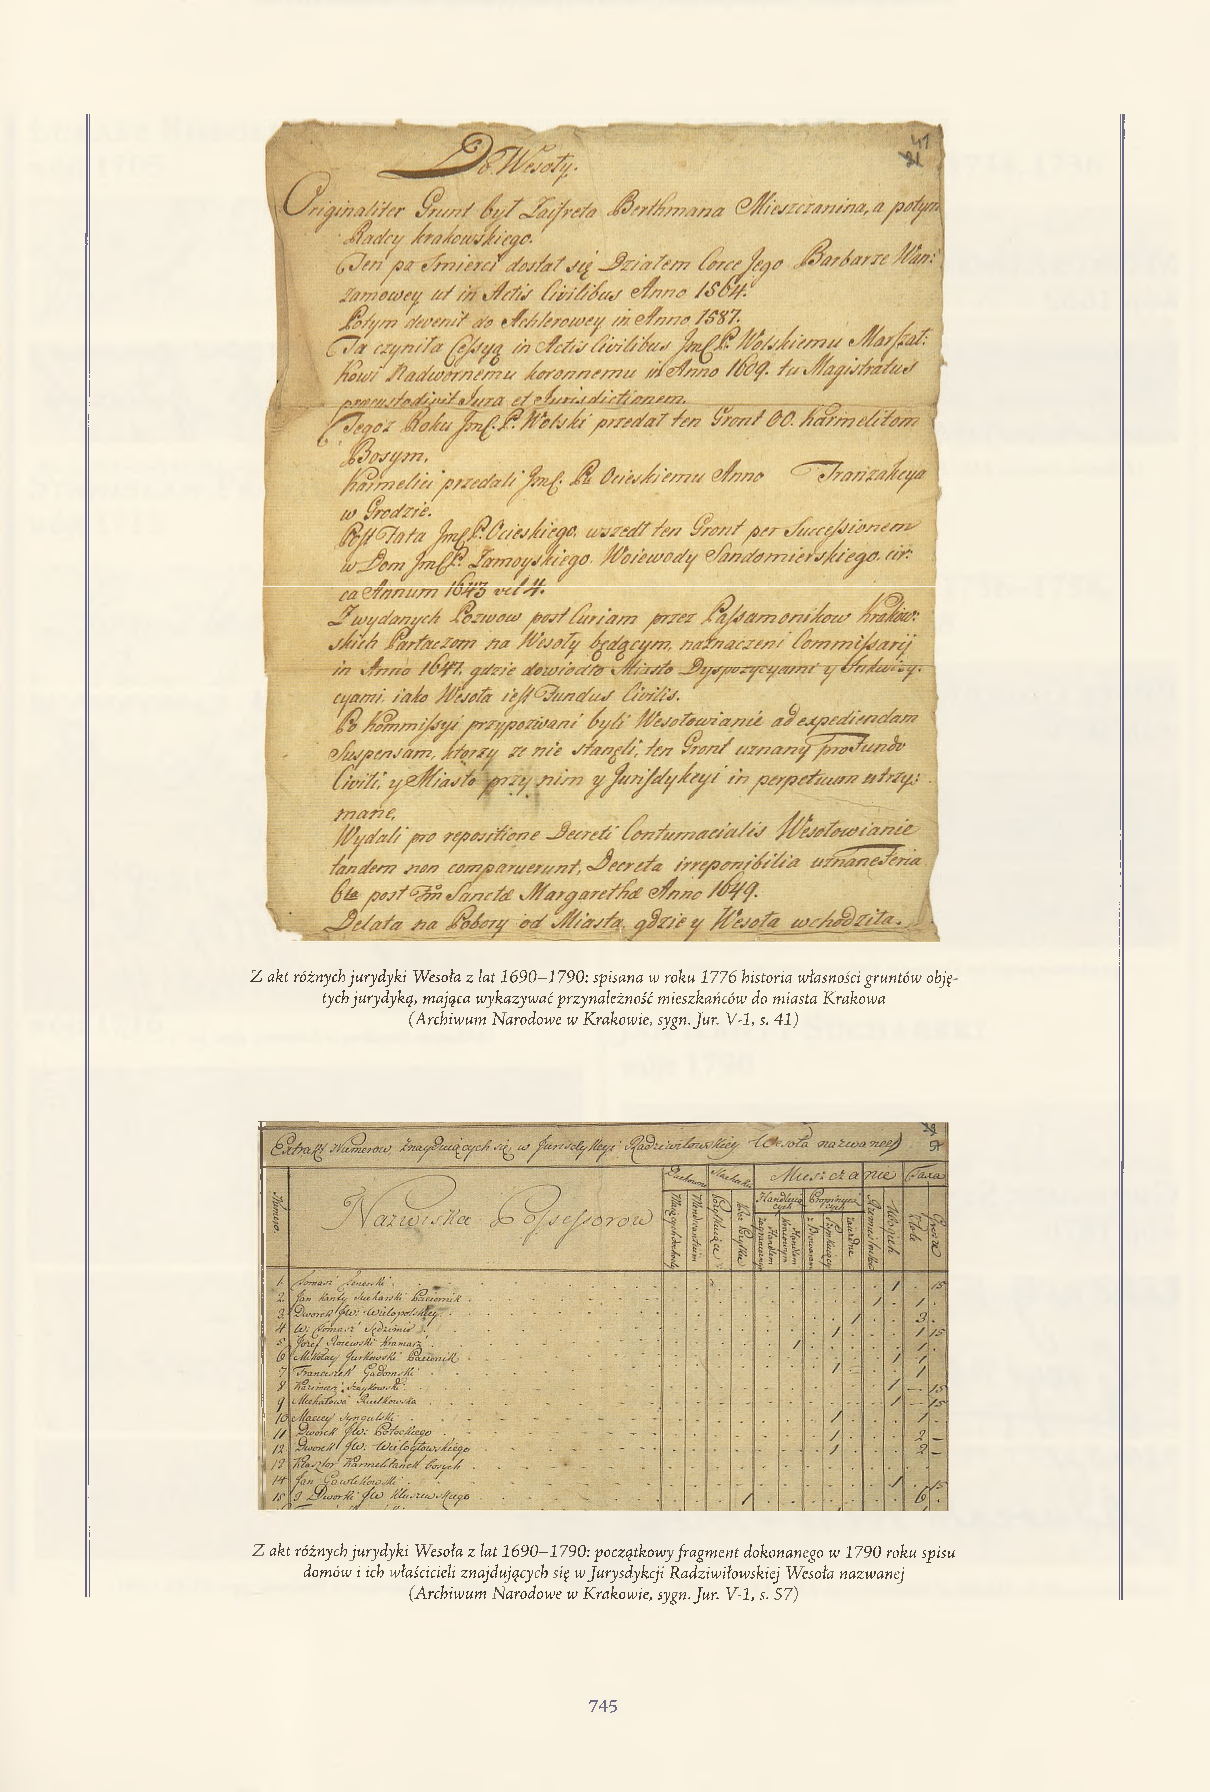 41
Do Wesoły.
Originaliter Grunt był Zaifreta Berthmana Mieszczanina, a potym
Radcy krakowskiego.
Ten po Smierci dostał się Działem Corce Jego Barbarze Wan:
zamowey ut in Actis Civilibus Anno 1564.
Potym devenit do Achlerowey in Anno 1587.
Ta czyniła Cessyą in Actis Civilibus Jmć P. Wolskiemu Marszał:
kowi Nadwornemu koronnemu in Anno 1609. tu Magistratus
praecustodivit Jura et Jurisdictionem.
Tegoż Roku Jmć P. Wolski przedał ten Gront OO. Karmelitom
Bosym.
Karmelici przedali Jmć Pu Ocieskiemu Anno Tranzakcya
w Grodzie.
Post Fata Jmć P. Ocieskiego, wszedł ten Gront per Successionem
w Dom Jmć P. Zamoyskiego Woiewody Sandomierskiego, cir:
ca Annum 1643 vel 4.
Z wydanych Pozwow post Curiam przez Passamonikow Krakow:
skich Partaczom na Wesoły będącym, naznaczeni Commissarij
in Anno 1647. gdzie dowiodło Miasto Dyspozycyami y Inkwizy:
cyami, iako Wesoła iest Fundus Civilis.
Po kommissyi przypozwani byli Wesołowianie ad expediendam
Suspensam, ktorzy ze nie stanęli, ten Gront uznany pro Fundo
Civili, y Miasto przy nim y Jurisdykcyi in perpetuum utrzy:
mane.
Wydali pro repositione Decreti Contumacialis Wesołowianie
tandem non comparuerunt, Decreta irreponibilia uznane Feria
6ta post Fm Sanctæ Margarethæ Anno 1649.
Delata na Pobory od Miasta, gdzie y Wesoła wchodziła.
Z akt różnych jurydyki Wesoła z lat 1690–1790: spisana w roku 1776 historia własności gruntów obję-
tych jurydyką, mająca wykazywać przynależność mieszkańców do miasta Krakowa
(Archiwum Narodowe w Krakowie, sygn. Jur. V-1, s. 41)
Extrakt Numerow znayduiących się w Jurisdykcyi Radziwiłowskiey Wesoła nazwaney
Duchowne Szlachta Mieszczanie Taxa
Numero. Nazwiska Possessorow
Handlujących Propinujących
Mających dochody Mendicantium Possydujące bez Zysku Handlem zagranicznym Handlem kraiowym z Browarem Szynkujący zaiezdne Rzemieślników Ubogich Złote Grosze
1 Tomasz Zenerski 1 15
2 Jan Kanty Sucharski Pasiernik 1 1
3 Dworek JW: Wielopolskiey 3
4 W. Tomasz Sędzimir 1 1 15
5 Józef Rożewski kramarz 1 1
6 Mikołay Jurkowski Pasiernik 1 1
7 Franciszek Gadomski 1 1
8 Kazimierz Szaykowski 1 15
9 Michałowa Rudkowska 1 15
10 Maciey Syngulski 1 1
11 Dworek JW: Potockiego 1 2
12 Dworek JW: Wielogłowskiego 1 2
13 Klasztor Karmelitanek bosych
14 Jan Gawlikowski 1 15
15 3 Dworki JW Kluszewskiego 1 6
Z akt różnych jurydyki Wesoła z lat 1690–1790: początkowy fragment dokonanego w 1790 roku spisu
domów i ich właścicieli znajdujących się w Jurysdykcji Radziwiłowskiej Wesoła nazwanej
(Archiwum Narodowe w Krakowie, sygn. Jur. V-1, s. 57)
745